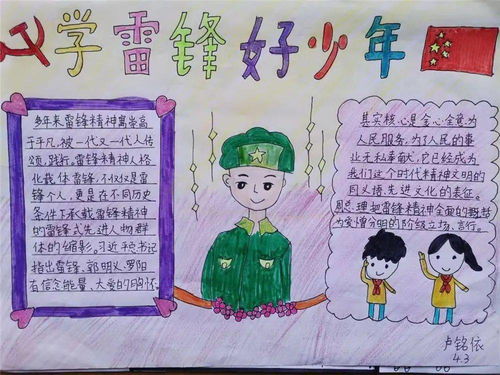 学雷锋好少年
多年来雷锋精神寓崇高
于平凡,被一代又一代人传
颂、践行。雷锋精神人格
化载体雷锋,不仅仅是雷
锋个人,更是在不同历史
条件下承载雷锋精神
的雷锋式先进人物群
体的缩影。习近平总书记
指出雷锋、郭明义、罗阳
有信念能量、大爱的胸怀。
其实核心是全心全意为
人民服务,为了人民的事
业无私奉献,它已经成为
我们这个时代精神文明的
同义语、先进文化的表征。
周总理把雷锋精神全面的概括
为爱憎分明的阶级立场、言行。
卢铭依
4.3